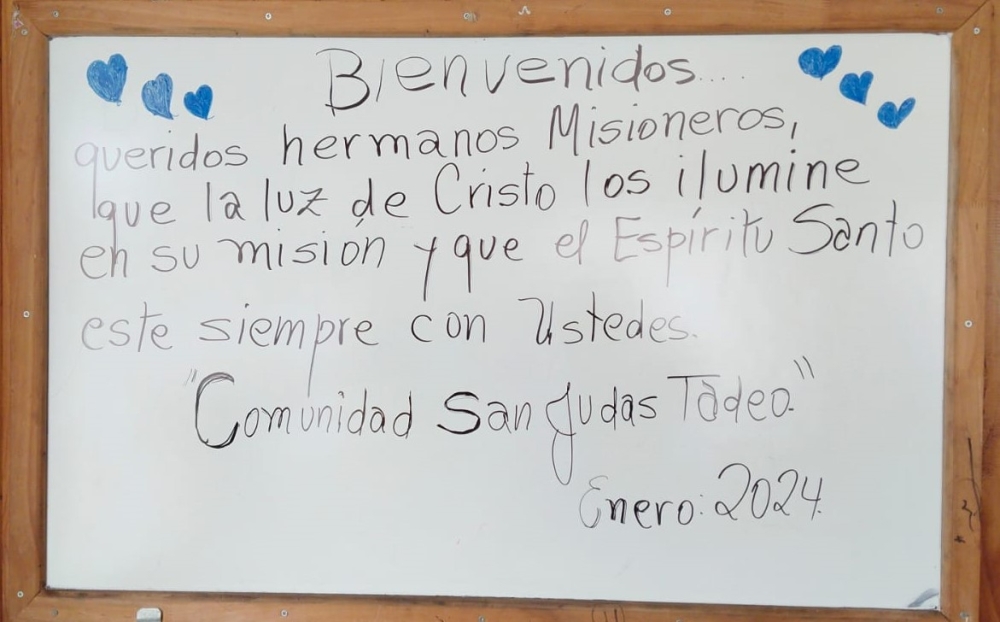 Bienvenidos....
queridos hermanos Misioneros,
que la luz de Cristo los ilumine
en su misión y que el Espíritu Santo
este siempre con Ustedes.
"Comunidad San Judas Tadeo."
Enero: 2024.